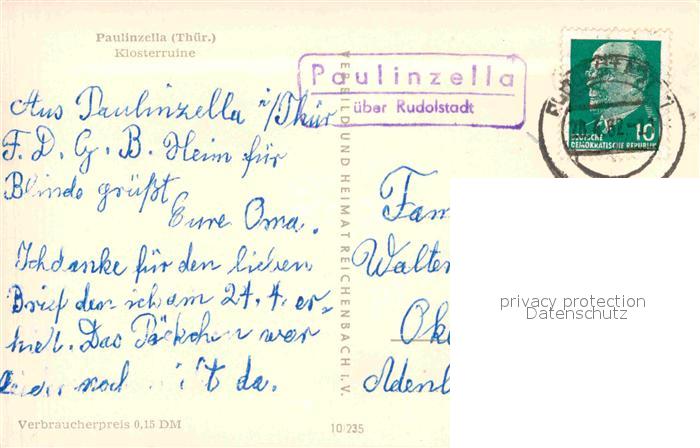 Paulinzella (Thür.)
Klosterruine
Paulinzella
über Rudolstadt
10
DEUTSCHE
DEMOKRATISCHE REPUBLIK
Aus Paulinzella i/Thür
F. D. G. B. Heim für
Blinde grüßt
Eure Oma.
Ich danke für den lieben
Brief den ich am 24. 4. er-
hielt. Das Päckchen war
leider noch nicht da.
Verbraucherpreis 0,15 DM
VEB BILD UND HEIMAT REICHENBACH I. V.
10/235
Fam
Walter
privacy protection
Datenschutz